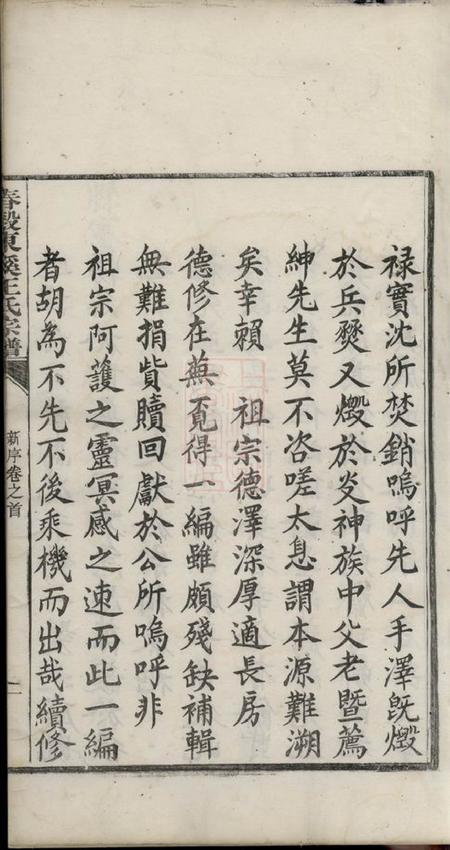 祿實沈所焚銷嗚呼先人手澤旣燬
於兵燹又燬於炎神族中父老暨薦
紳先生莫不咨嗟太息謂本源難溯
矣幸賴　祖宗德澤深厚適長房
德修在蕪覓得一編雖頗殘缺補輯
無難捐貲贖回獻於公所嗚呼非
祖宗阿護之靈冥感之速而此一編
者胡為不先不後乘機而出哉續修
春穀東溪王氏宗譜
新序卷之首